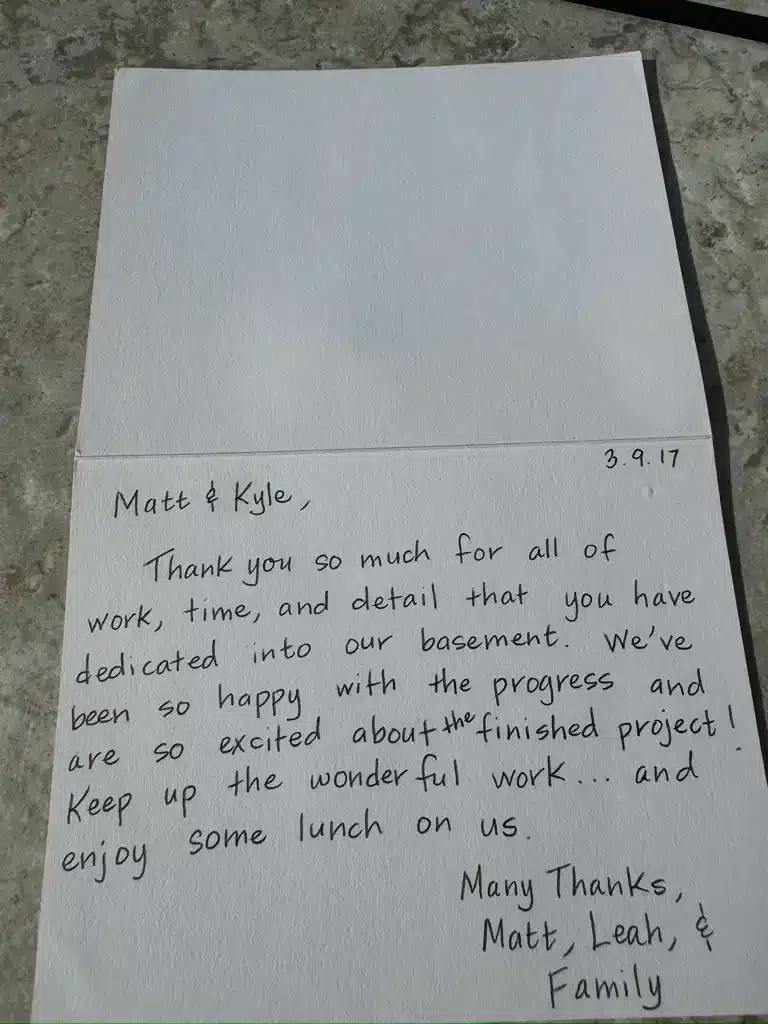 3.9.17
Matt & Kyle,
Thank you so much for all of
work, time, and detail that you have
dedicated into our basement. We've
been so happy with the progress and
are so excited about the finished project!
Keep up the wonderful work... and
enjoy some lunch on us.
Many Thanks,
Matt, Leah, &
Family